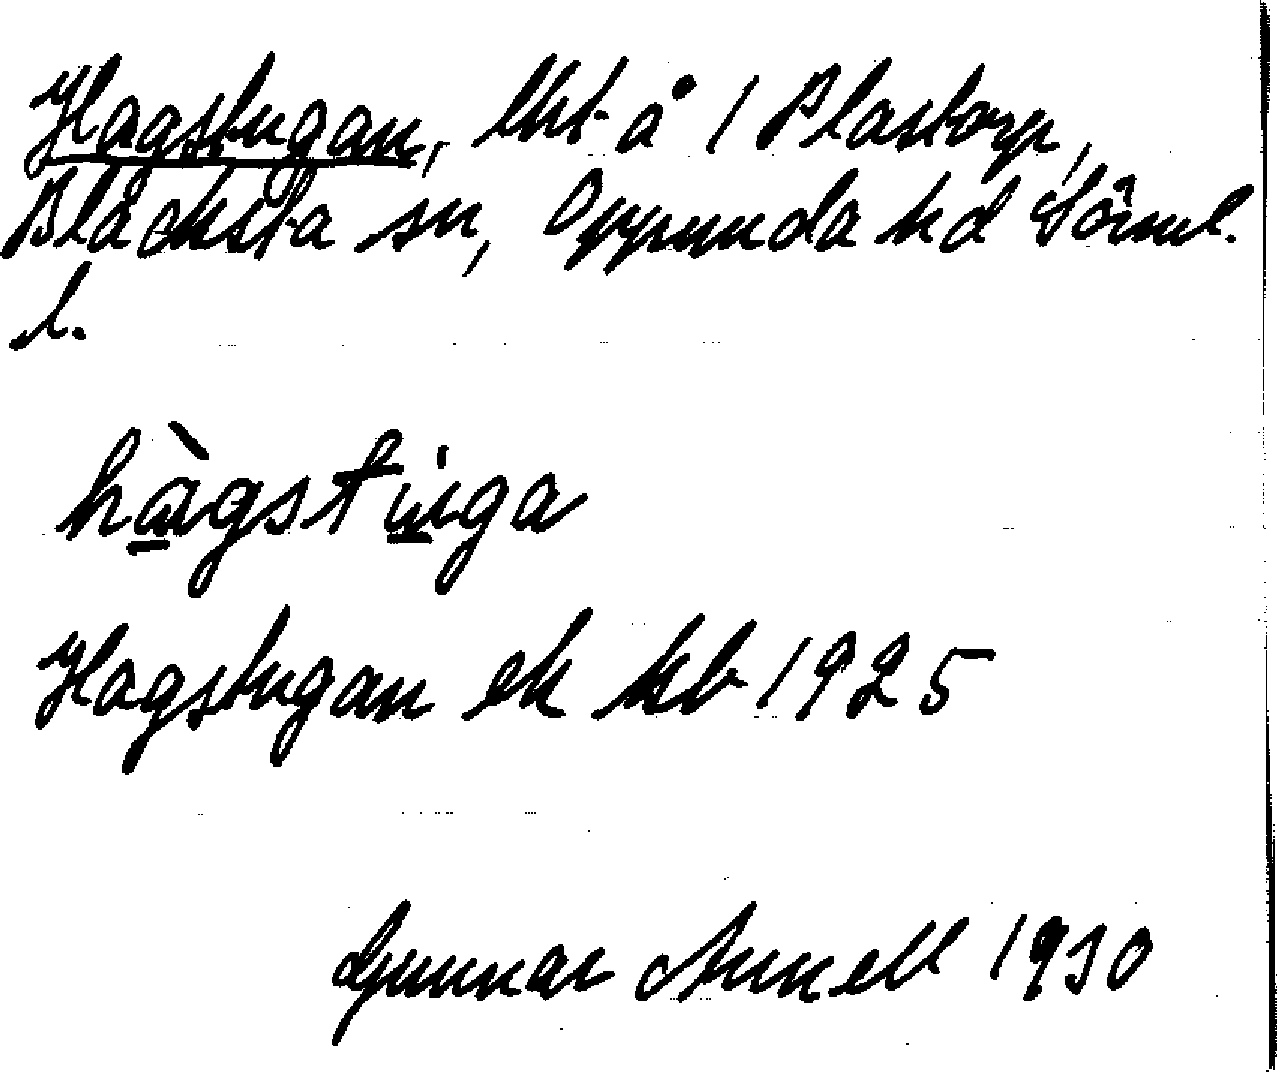 Hagstugan, lht å 1 Plastorp,
Blacksta sn, Oppunda hd Söml.
l.
hàgstuga
Hagstugan ek kb 1925
Gunnar Arnell 1930